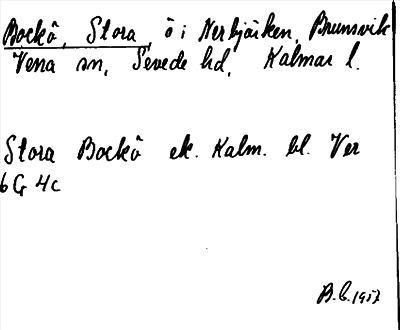 Bockö, Stora, ö i Nerbjärken, Brunsvik
Vena sn, Sevede hd, Kalmar l.
Stora Bockö ek. Kalm. bl. Ver
6G 4c
B.C. 1957